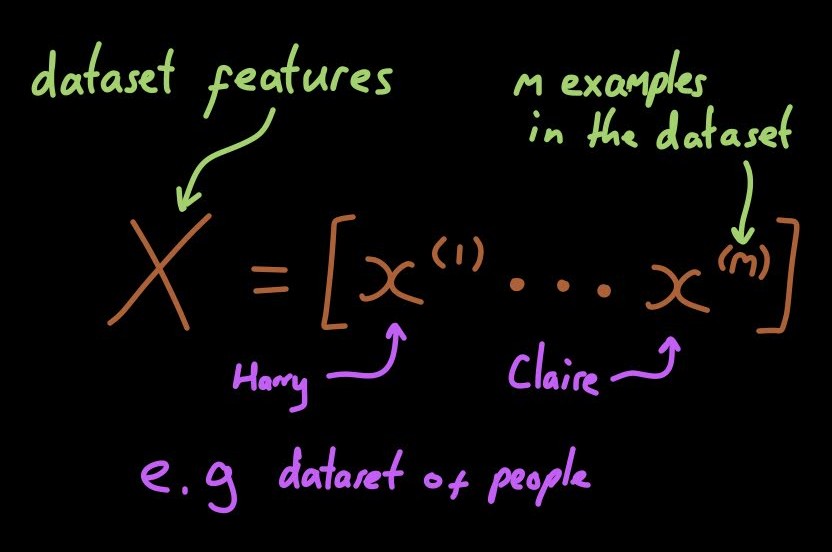 dataset features
m examples
in the dataset
X = [x^(1) . . . x^(m)]
Harry
Claire
e.g dataset of people